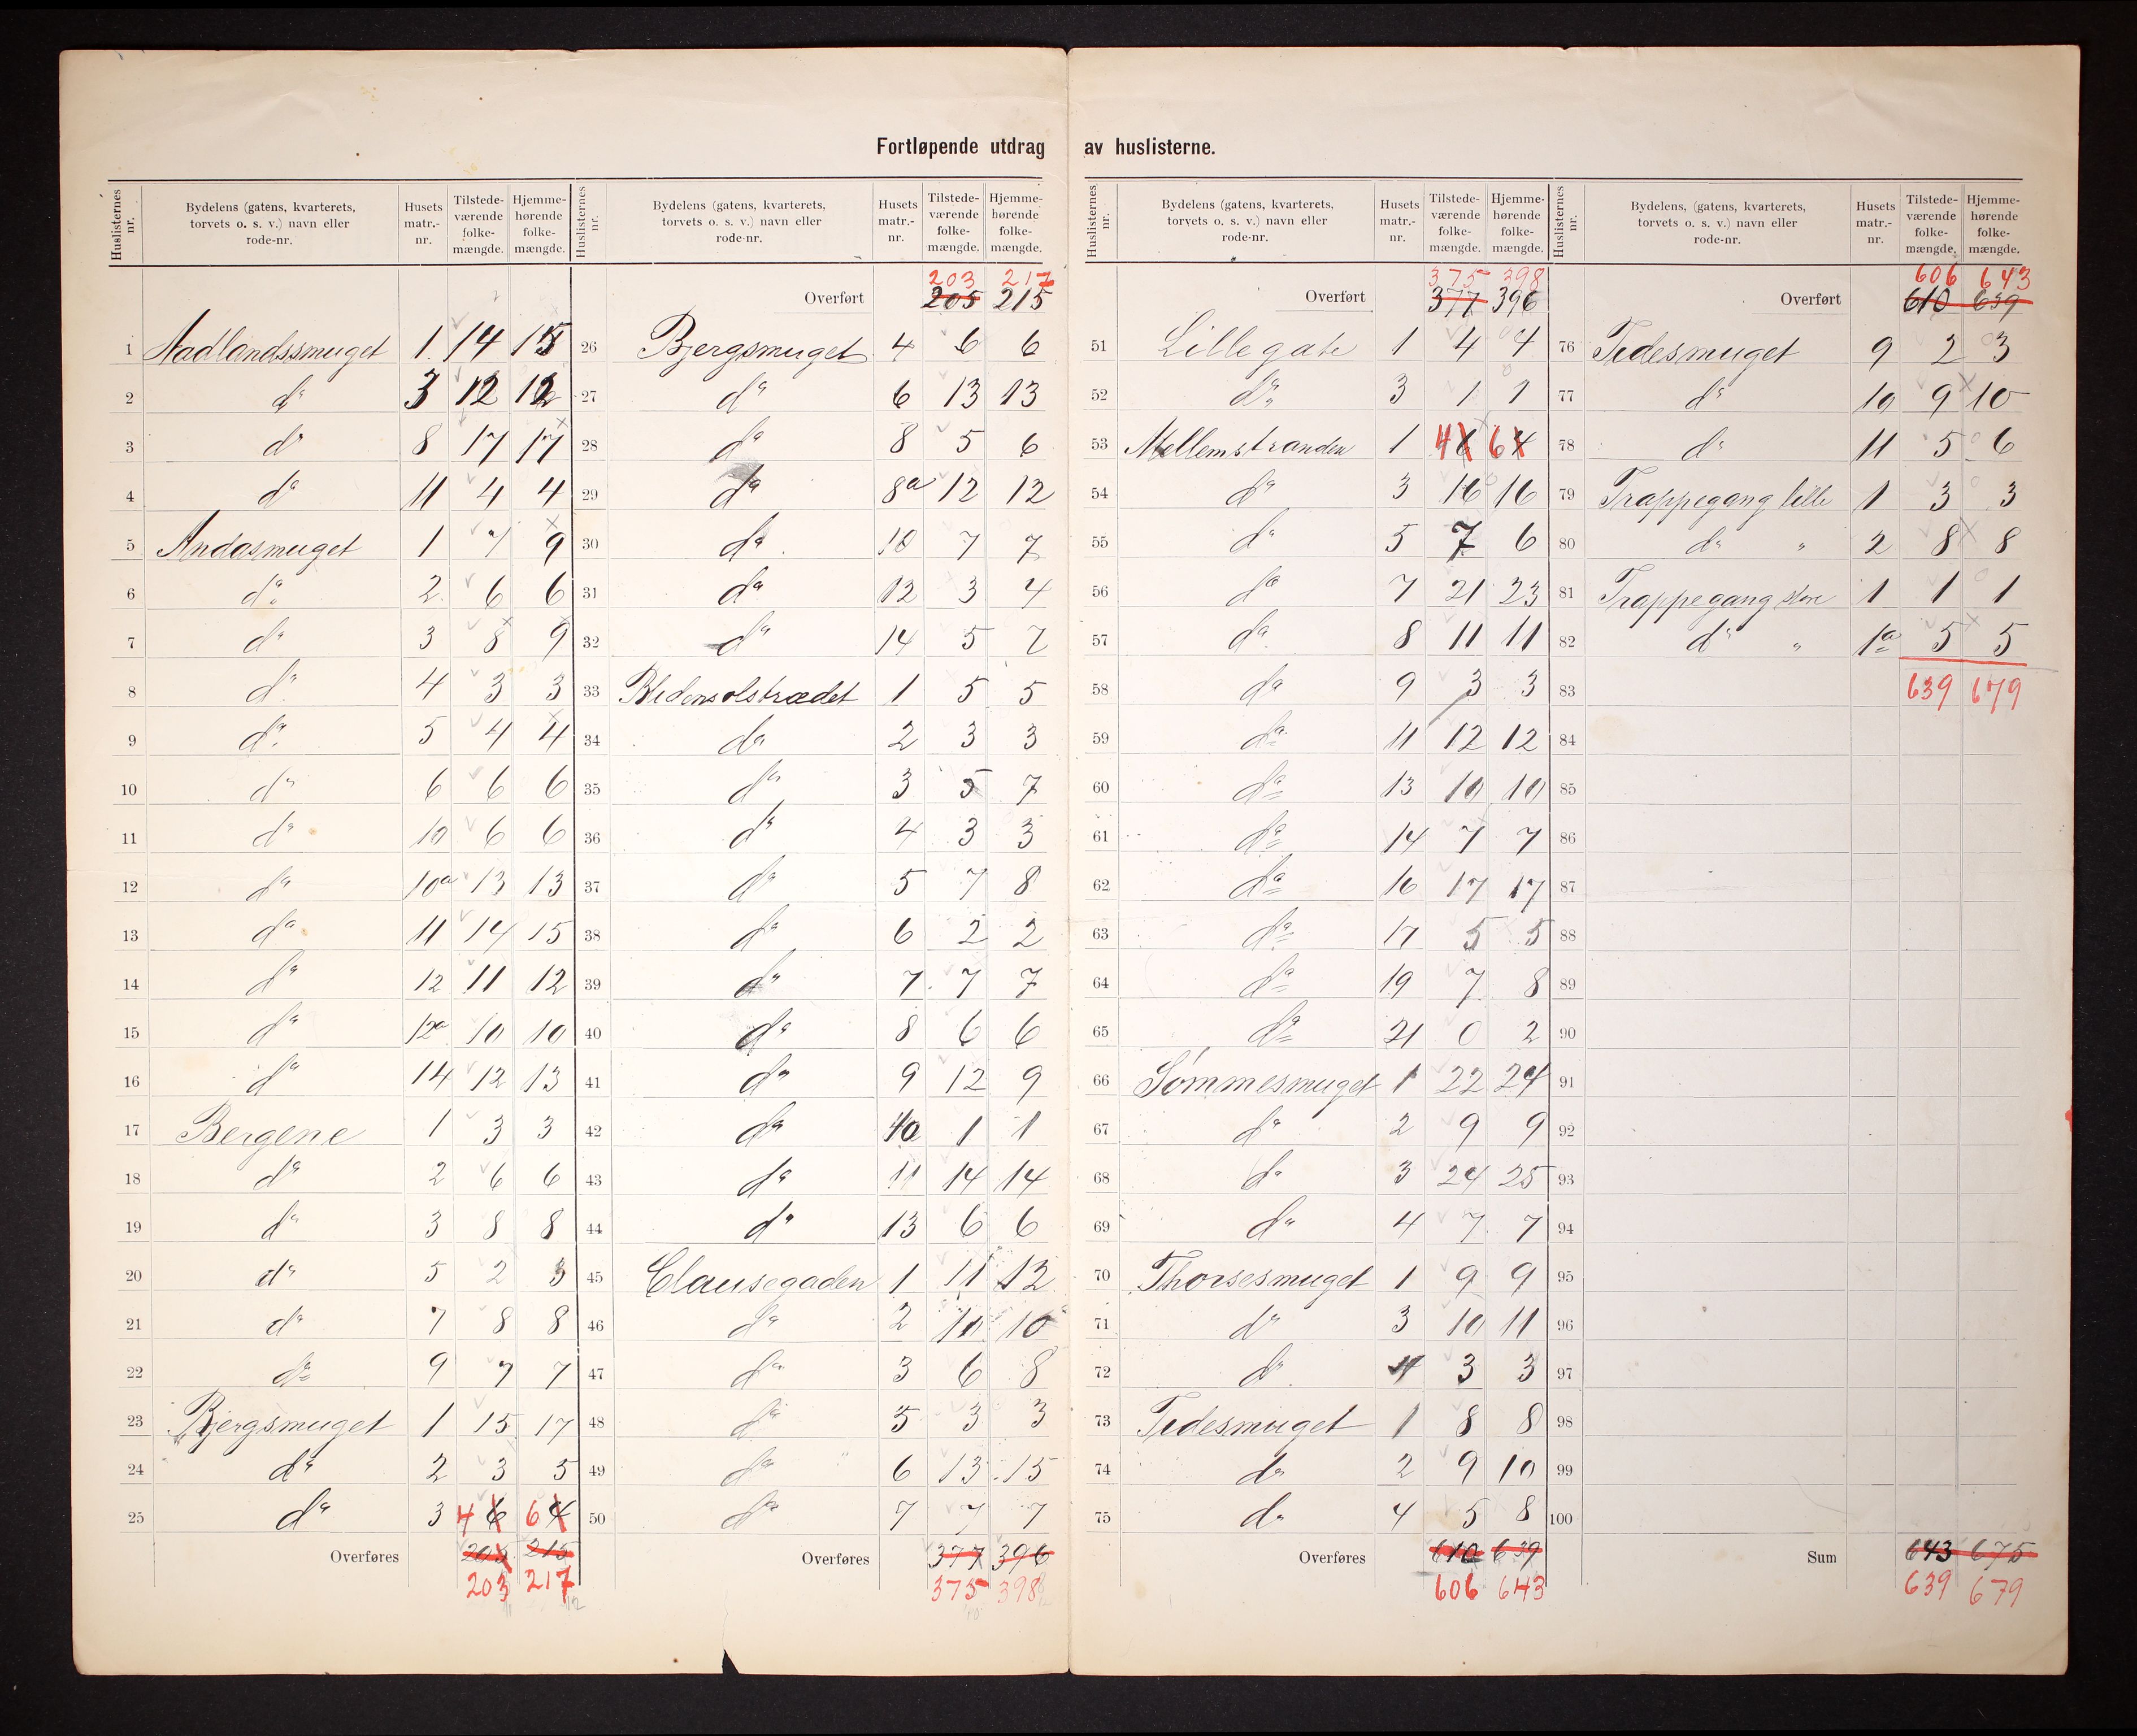 Fortløpende utdrag av huslisterne.
Huslisternes nr. Bydelens (gatens, kvarterets, torvets o. s. v.) navn eller rode-nr. Husets matr.-nr. Tilstede-værende folke-mængde. Hjemme-hørende folke-mængde.
1 Aadlandssmuget 1 14 15
2 da 3 12 12
3 da 8 17 17
4 da 11 4 4
5 Andasmuget 1 7 9
6 da 2 6 6
7 da 3 8 9
8 da 4 3 3
9 da 5 4 4
10 da 6 6 6
11 da 10 6 6
12 da 10a 13 13
13 da 11 14 15
14 da 12 11 12
15 da 12a 10 10
16 da 14 12 13
17 Bergene 1 3 3
18 da 2 6 6
19 da 3 8 8
20 da 5 2 3
21 da 7 8 8
22 da 9 7 7
23 Bjergsmuget 1 15 17
24 da 2 3 5
25 da 3 4 6 6 4
Overføres 205 215
203 217
Huslisternes nr. Bydelens (gatens, kvarterets, torvets o. s. v.) navn eller rode-nr. Husets matr.-nr. Tilstede-værende folke-mængde. Hjemme-hørende folke-mængde.
203 217
Overført 205 215
26 Bjergsmuget 4 6 6
27 da 6 13 13
28 da 8 5 6
29 da 8a 12 12
30 da 10 7 7
31 da 12 3 4
32 da 14 5 7
33 Blidensolstrædet 1 5 5
34 da 2 3 3
35 da 3 5 7
36 da 4 3 3
37 da 5 7 8
38 da 6 2 2
39 da 7 7 7
40 da 8 6 6
41 da 9 12 9
42 da 10 1 1
43 da 11 14 14
44 da 13 6 6
45 Clausegaden 1 11 12
46 da 2 10 10
47 da 3 6 8
48 da 5 3 3
49 da 6 13 15
50 da 7 7 7
Overføres 377 396
375 398
Huslisternes nr. Bydelens (gatens, kvarterets, torvets o. s. v.) navn eller rode-nr. Husets matr.-nr. Tilstede-værende folke-mængde. Hjemme-hørende folke-mængde.
375 398
Overført 377 396
51 Lillegate 1 4 4
52 da 3 1 1
53 Mellemstranden 1 4 6 6 4
54 da 3 16 16
55 da 5 7 6
56 da 7 21 23
57 da 8 11 11
58 da 9 3 3
59 da 11 12 12
60 da 13 10 10
61 da 14 7 7
62 da 16 17 17
63 da 17 5 5
64 da 19 7 8
65 da 21 0 2
66 Sømmesmuget 1 22 24
67 da 2 9 9
68 da 3 24 25
69 da 4 7 7
70 Thorsesmuget 1 9 9
71 da 3 10 11
72 da 4 3 3
73 Tedesmuget 1 8 8
74 da 2 9 10
75 da 4 5 8
Overføres 610 639
606 643
Huslisternes nr. Bydelens, (gatens, kvarterets, torvets o. s. v.) navn eller rode-nr. Husets matr.-nr. Tilstede-værende folke-mængde. Hjemme-hørende folke-mængde.
606 643
Overført 610 639
76 Tedesmuget 9 2 3
77 da 10 9 10
78 da 11 5 6
79 Trappegang lille 1 3 3
80 da " 2 8 8
81 Trappegang store 1 1 1
82 da " 1a 5 5
83 639 679
84
85
86
87
88
89
90
91
92
93
94
95
96
97
98
99
100
Sum 643 675
639 679